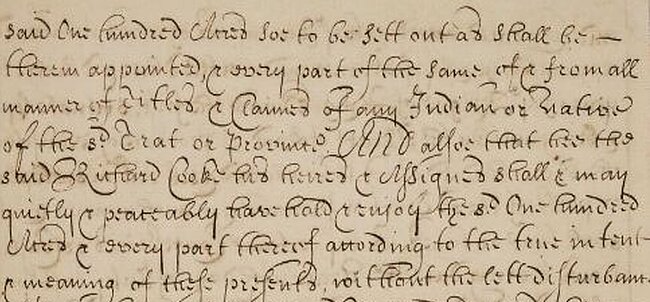 said One hundred Acres soe to be sett out as shall be —
therein appointed, & every part of the same of & from all
manner of Titles & Claimes of any Indian or Native
of the sd Trat or Province AND alsoe that hee the
said Richard Cooke his heires & Assignes shall & may
quietly & peaceably have hold & enjoy the sd One hundred
Acres & every part thereof according to the true intent
& meaning of these presents, without the lett disturbanc